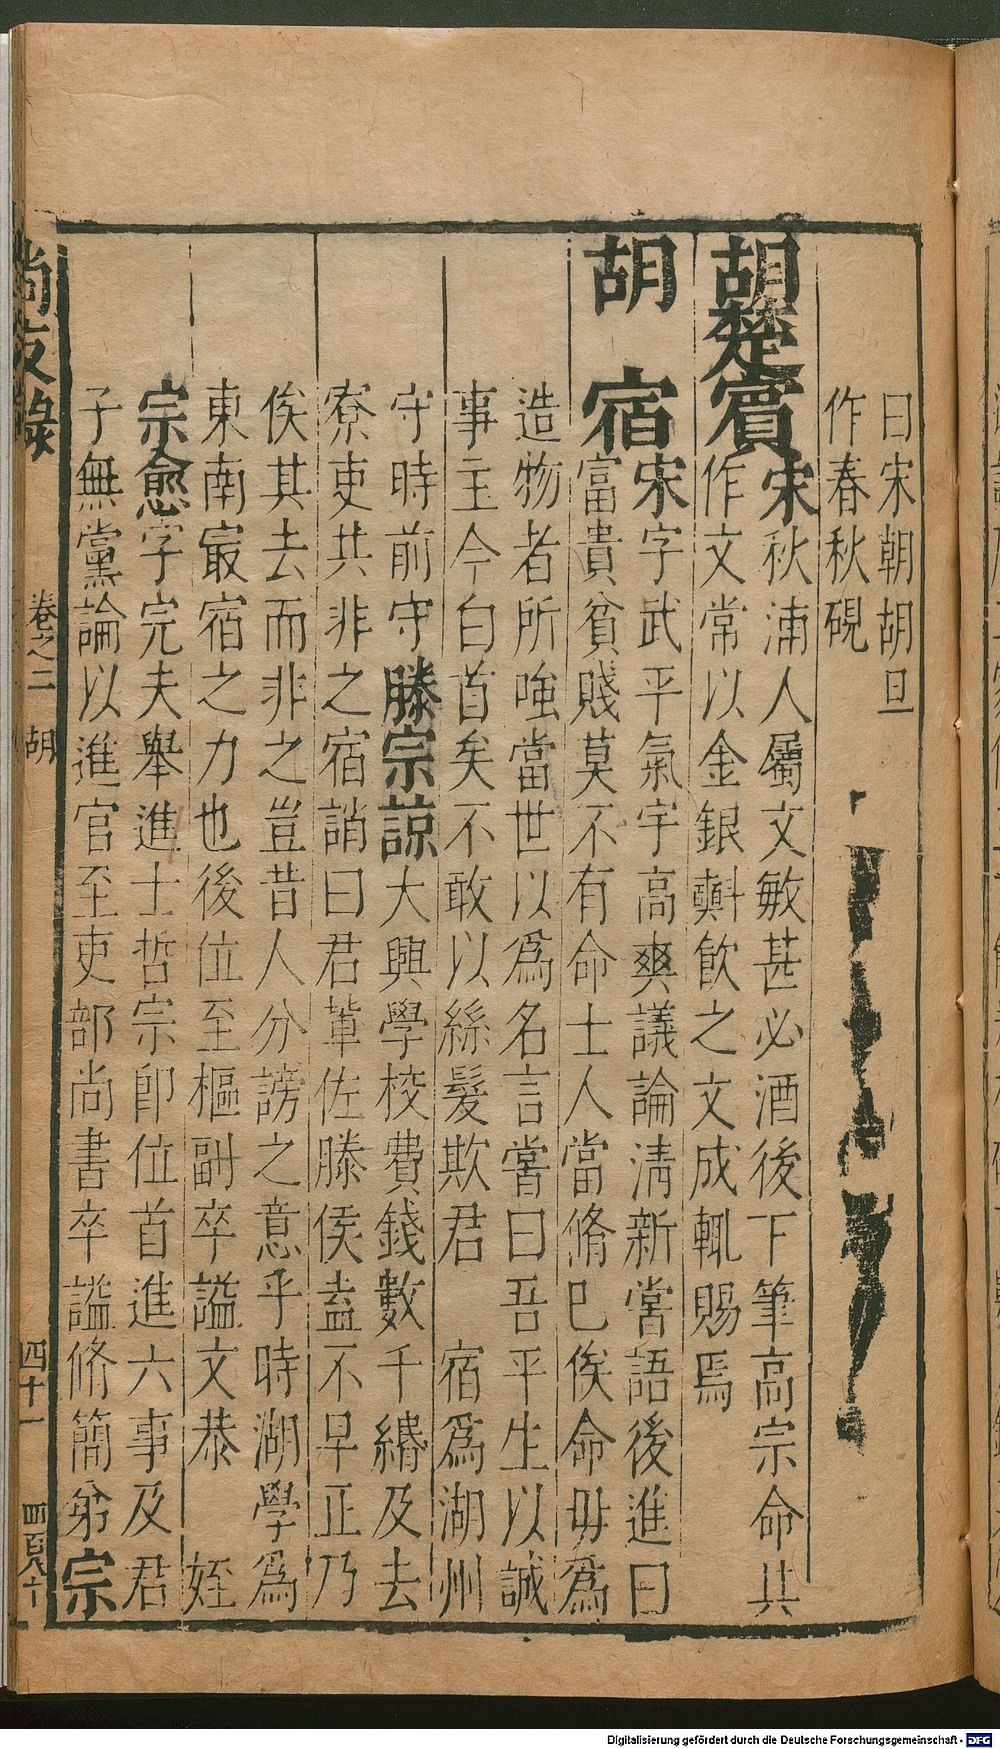 曰宋朝胡旦
作春秋硯
胡楚賓宋秋浦人屬文敏甚必酒後下筆高宗命共
作文常以金銀㪺飲之文成輒賜焉
胡　宿宋字武平氣宇高爽議論清新嘗語後進曰
富貴貧賤莫不有命士人當脩已俟命毋為
造物者所嗤當世以為名言嘗曰吾平生以誠
事主今白首矣不敢以絲髮欺君　宿為湖州
守時前守滕宗諒大興學校費錢數千緡及去
寮吏共非之宿誚曰君輩佐滕侯盍不早正乃
俟其去而非之豈昔人分謗之意乎時湖學為
東南㝡宿之力也後位至樞副卒謚文恭　姪
宗愈字完夫舉進士哲宗卽位首進六事及君
子無黨論以進官至吏部尚書卒謚脩簡弟宗
尚友錄　卷之二　胡　四十一　四百八十
Digitalisierung gefördert durch die Deutsche Forschungsgemeinschaft - DFG